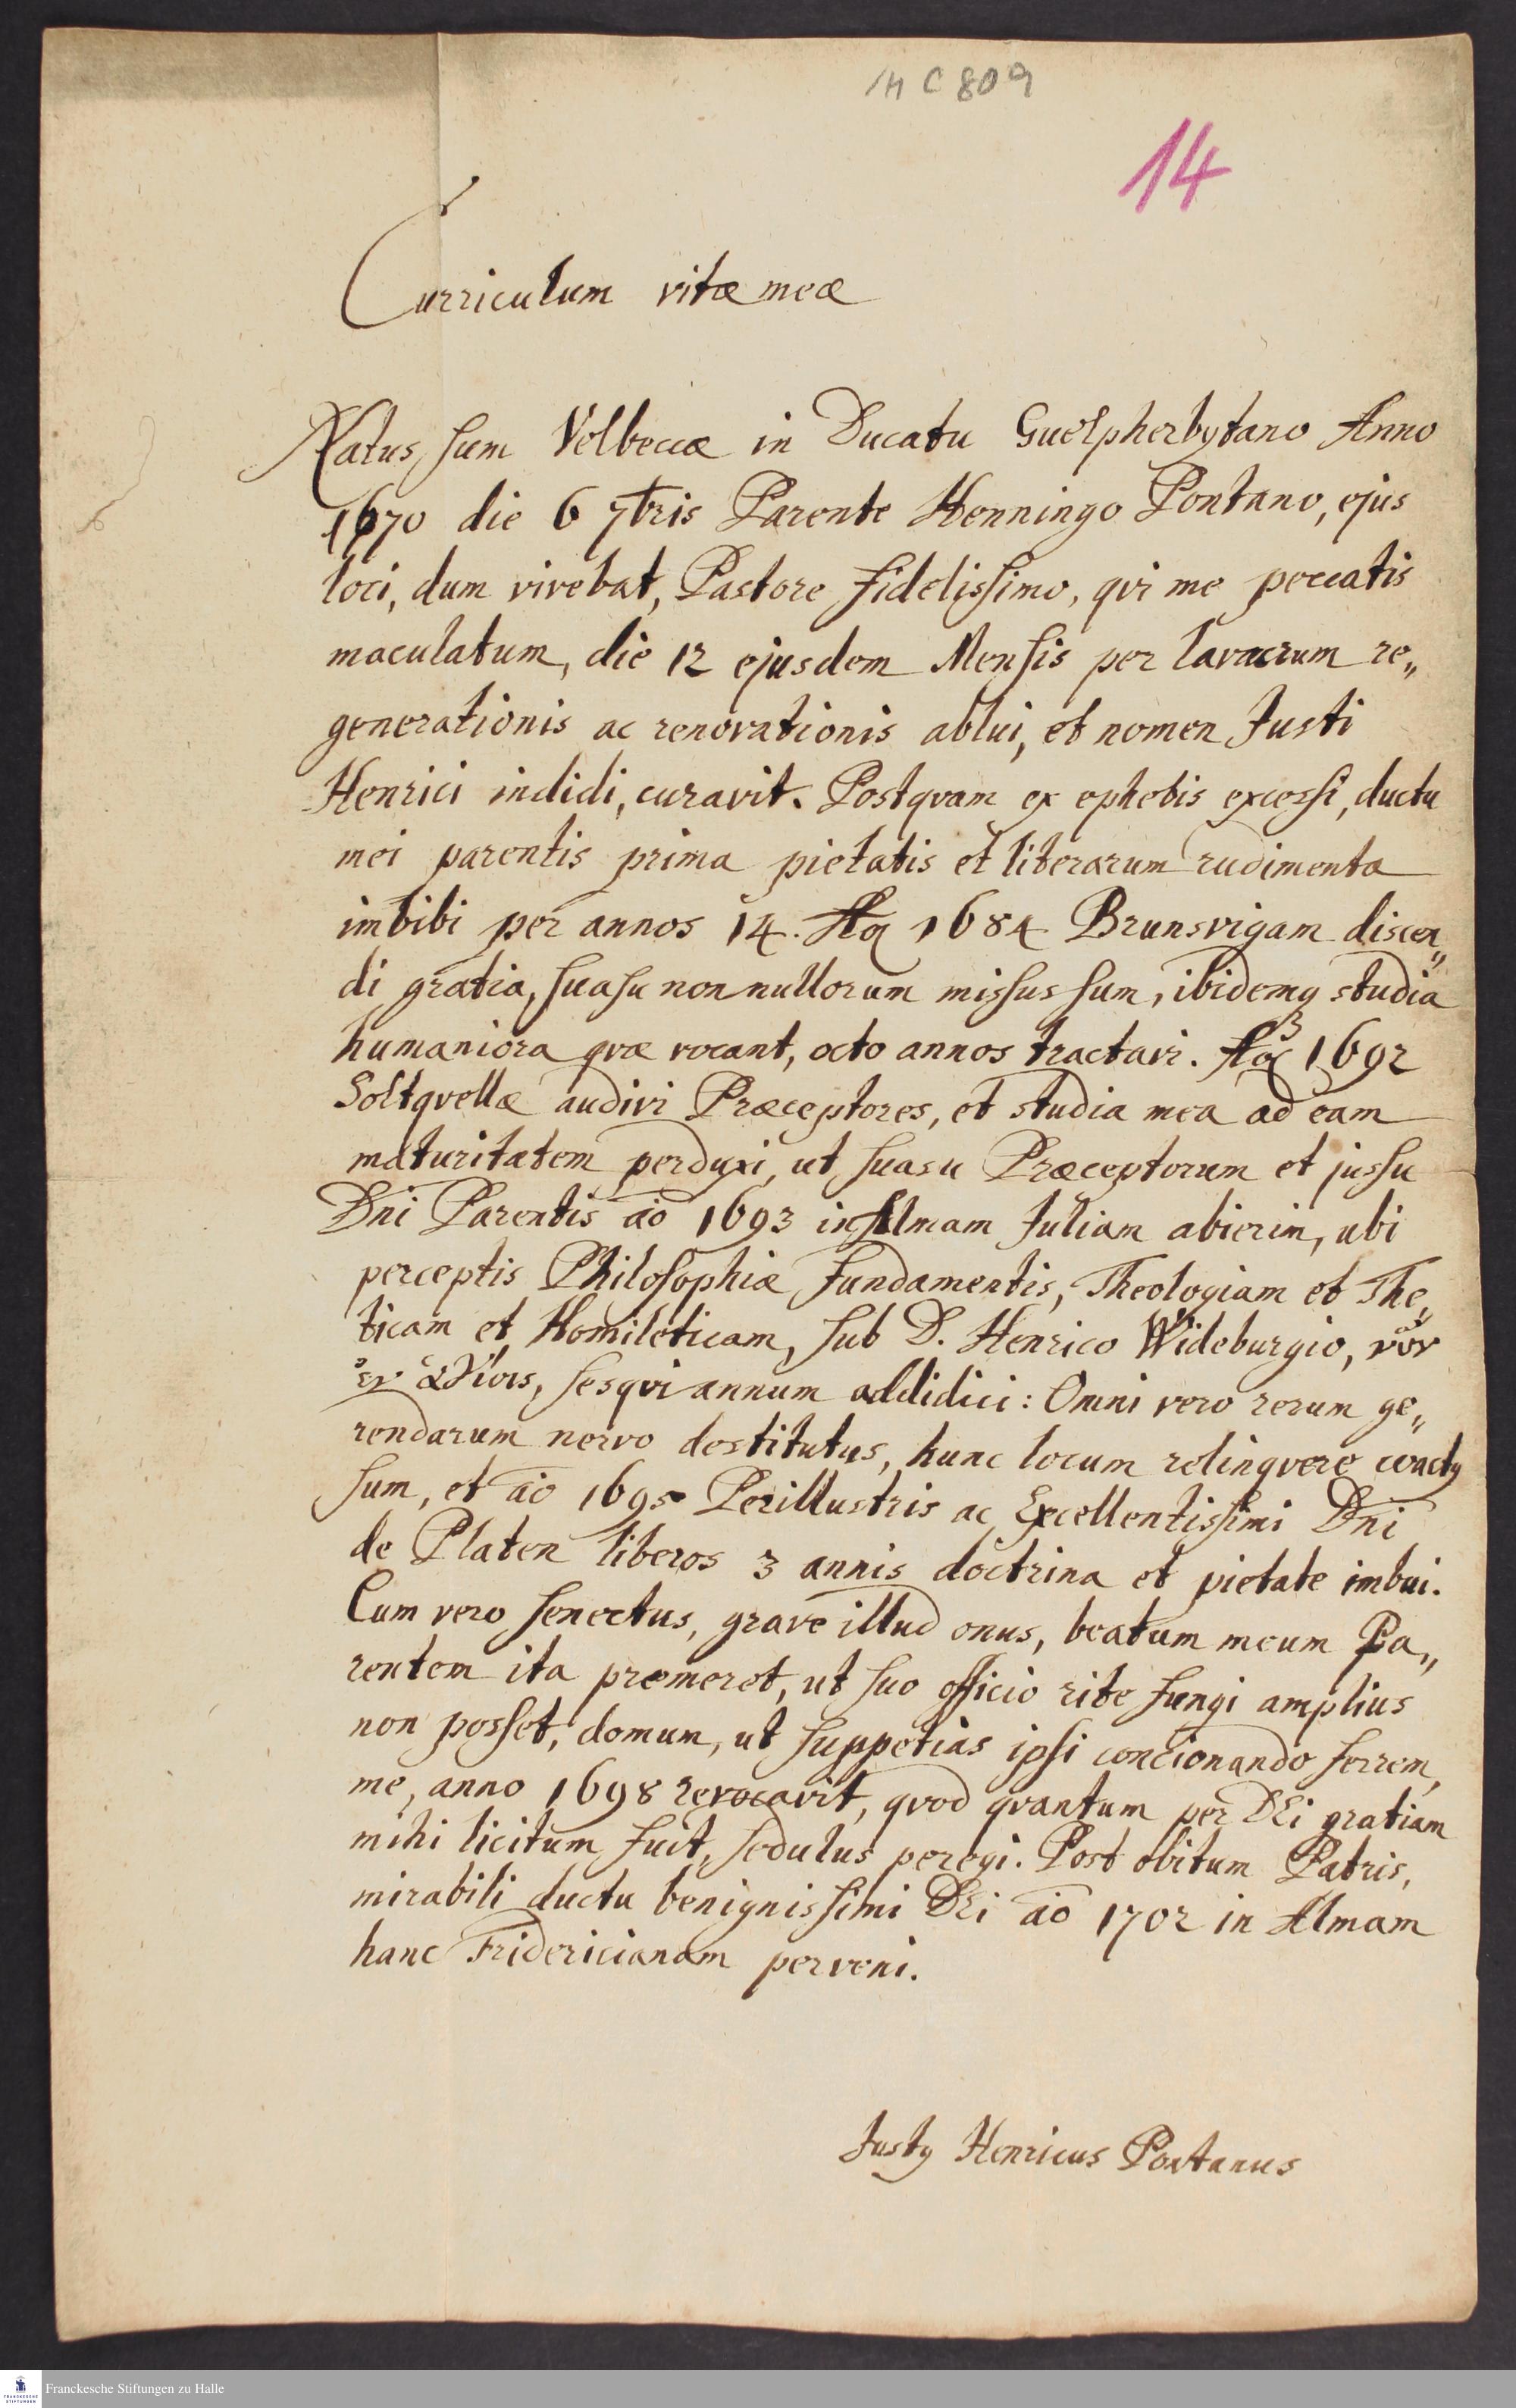 H C 809
14
Curriculum vitæ meæ
Natus sum Velbeccæ in Ducatu Guelpherbytano Anno
1670 die 6 7tris Parente Henningo Pontano, ejus
loci, dum vivebat, Pastore fidelissimo, qvi me peccatis
maculatum, die 12 ejusdem Mensis per lavacrum re„
generationis ac renovationis ablui, et nomen Justi
Henrici indidi, curavit. Postqvam ex ephebis excessi, ductu
mei parentis prima pietatis et literarum rudimenta
imbibi per annos 14. 1684 Brunsvigam discen„
di gratia, suasu nonnullorum missus sum, ibidemq studia
humaniora qvæ vocant, octo annos tractavi. 1692
Soltqvellæ audivi Præceptores, et studia mea ad eam
maturitatem perduxi, ut suasu Præceptorum et jussu
Dni Parentis ao 1693 in Almam Juliam abierim, ubi
perceptis Philosophiæ fundamentis, Theologiam et The„
ticam et Homileticam, sub D. Henrico Wideburgio, νῦν
ἐν ἁγίοις, sesqvi annum addidici: Omni vero rerum ge„
rendarum nervo destitutus, hunc locum relinqvere coactq
sum, et ao 1695 Perillustris ac Excellentissimi Dni
de Platen liberos 3 annis doctrina et pietate imbui.
Cum vero senectus, grave illud onus, beatum meum Pa„
rentem ita premeret, ut suo officio rite fungi amplius
non posset, domum, ut suppetias ipsi concionando ferrem,
me, anno 1698 revocavit, qvod qvantum per DEi gratiam
mihi licitum fuit, sedulus peregi. Post obitum Patris,
mirabili ductu benignissimi DEi ao 1702 in Almam
hanc Fridericianam perveni.
Justq Henricus Pontanus
Franckesche Stiftungen zu Halle